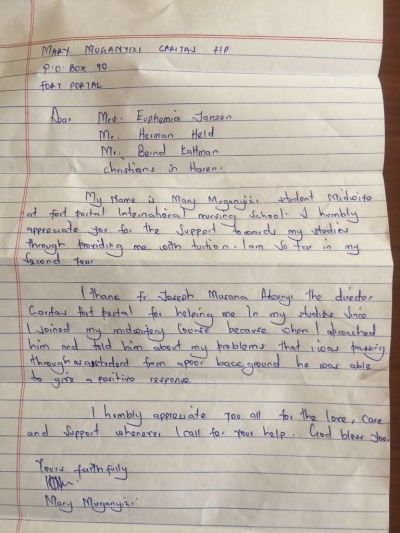 MARY MUGANYIZI CARITAS F/P
P.O. BOX 90
FORT PORTAL
Dear Mrs. Euphemia Janzen
Mr. Heiman Held
Mr. Bernd Kathman
Christians in Haren.
My Name is Mary Muganyizi student Midwife
at fort portal International nursing School. I humbly
appreciate you for the support towards my studies
through providing me with tuition. I am so far in my
Second Year
I thank fr Joseph Murana the director
Caritas fort portal for helping me in my studies since
I joined my midwifery Course because when I aproached
him and told him about my problems that i was passing
through as a student from a poor back ground he was able
to give a positive response
I hombly appreciate you all for the love, care
and support whenever I call for your help. God bless you.
Yours faithfully
Mary Muganyizi